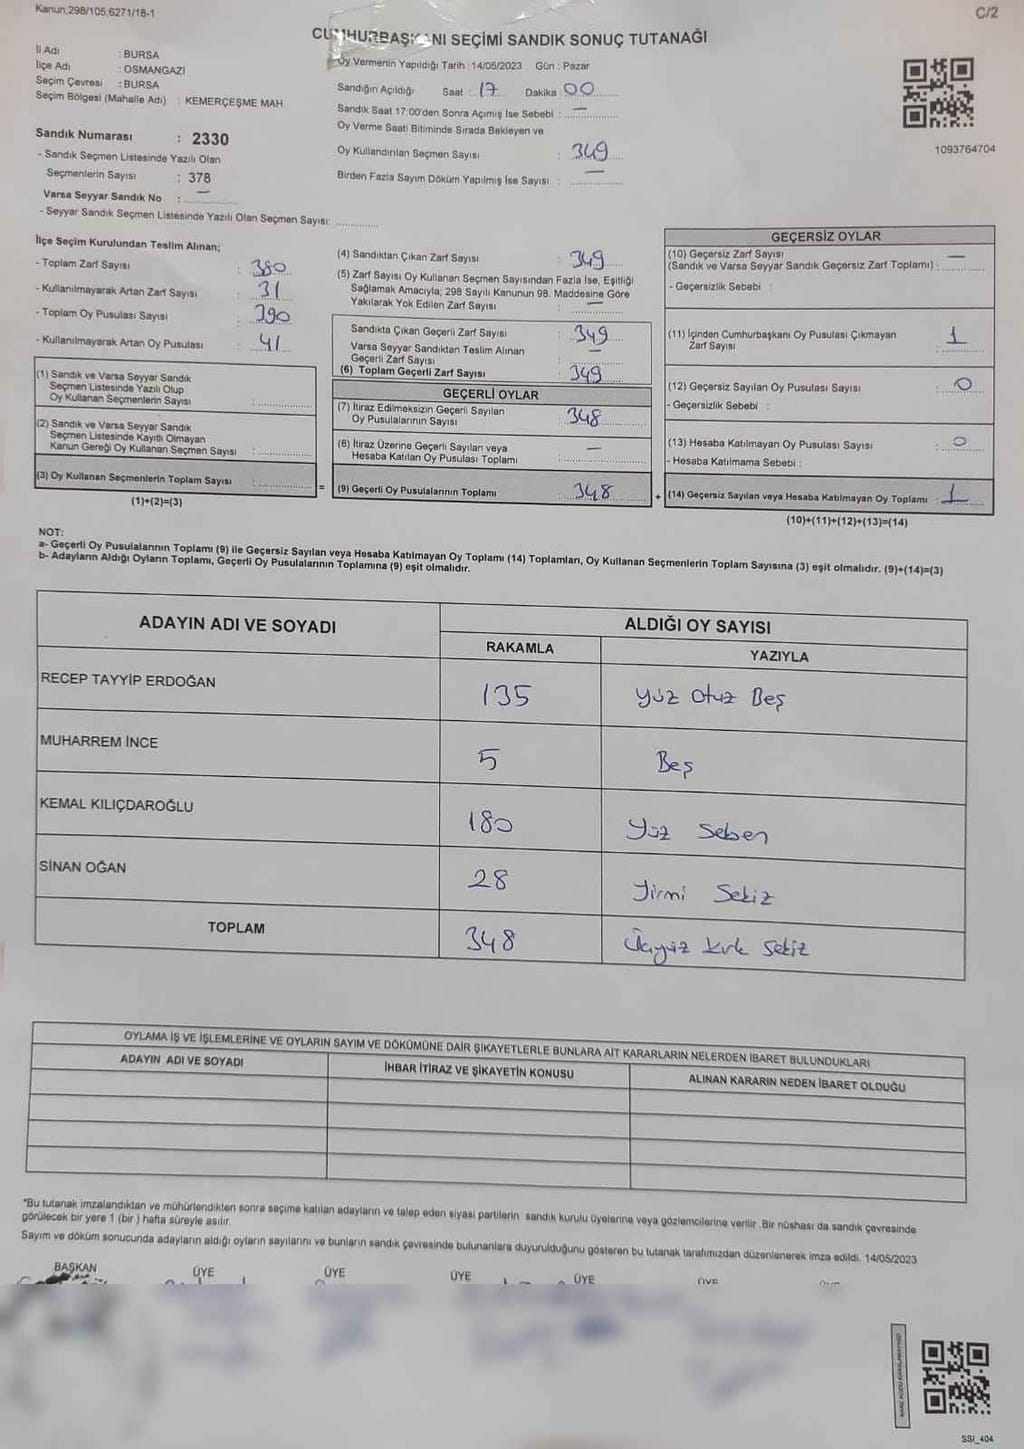 Kanun;298/105,6271/18-1
C/2
CUMHURBAŞKANI SEÇİMİ SANDIK SONUÇ TUTANAĞI
İl Adı : BURSA
İlçe Adı : OSMANGAZİ
Seçim Çevresi : BURSA
Seçim Bölgesi (Mahalle Adı) : KEMERÇEŞME MAH.
Sandık Numarası : 2330
- Sandık Seçmen Listesinde Yazılı Olan
Seçmenlerin Sayısı : 378
Varsa Seyyar Sandık No : —
- Seyyar Sandık Seçmen Listesinde Yazılı Olan Seçmen Sayısı: ..............
Oy Vermenin Yapıldığı Tarih :14/05/2023 Gün : Pazar
Sandığın Açıldığı Saat : 17 Dakika 00
Sandık Saat 17:00'den Sonra Açımış İse Sebebi : —
Oy Verme Saati Bitiminde Sırada Bekleyen ve
Oy Kullandırılan Seçmen Sayısı : 349
Birden Fazla Sayım Döküm Yapılmış İse Sayısı : —
1093764704
İlçe Seçim Kurulundan Teslim Alınan;
- Toplam Zarf Sayısı : 380
- Kullanılmayarak Artan Zarf Sayısı : 31
- Toplam Oy Pusulası Sayısı : 390
- Kullanılmayarak Artan Oy Pusulası : 41
(1) Sandık ve Varsa Seyyar Sandık
Seçmen Listesinde Yazılı Olup
Oy Kullanan Seçmenlerin Sayısı : ..............
(2) Sandık ve Varsa Seyyar Sandık
Seçmen Listesinde Kayıtlı Olmayan
Kanun Gereği Oy Kullanan Seçmen Sayısı : ..............
(3) Oy Kullanan Seçmenlerin Toplam Sayısı : ..............
(1)+(2)=(3)
(4) Sandıktan Çıkan Zarf Sayısı : 349
(5) Zarf Sayısı Oy Kullanan Seçmen Sayısından Fazla İse, Eşitliği
Sağlamak Amacıyla, 298 Sayılı Kanunun 98. Maddesine Göre
Yakılarak Yok Edilen Zarf Sayısı : —
Sandıkta Çıkan Geçerli Zarf Sayısı : 349
Varsa Seyyar Sandıktan Teslim Alınan
Geçerli Zarf Sayısı : —
(6) Toplam Geçerli Zarf Sayısı : 349
GEÇERLİ OYLAR
(7) İtiraz Edilmeksizin Geçerli Sayılan
Oy Pusulalarının Sayısı : 348
(8) İtiraz Üzerine Geçerli Sayılan veya
Hesaba Katılan Oy Pusulası Toplamı : —
= (9) Geçerli Oy Pusulalarının Toplamı : 348
GEÇERSİZ OYLAR
(10) Geçersiz Zarf Sayısı
(Sandık ve Varsa Seyyar Sandık Geçersiz Zarf Toplamı) : —
- Geçersizlik Sebebi :
(11) İçinden Cumhurbaşkanı Oy Pusulası Çıkmayan
Zarf Sayısı : 1
(12) Geçersiz Sayılan Oy Pusulası Sayısı : 0
- Geçersizlik Sebebi :
(13) Hesaba Katılmayan Oy Pusulası Sayısı : 0
- Hesaba Katılmama Sebebi :
+ (14) Geçersiz Sayılan veya Hesaba Katılmayan Oy Toplamı : 1
(10)+(11)+(12)+(13)=(14)
NOT:
a- Geçerli Oy Pusulalarının Toplamı (9) ile Geçersiz Sayılan veya Hesaba Katılmayan Oy Toplamı (14) Toplamları, Oy Kullanan Seçmenlerin Toplam Sayısına (3) eşit olmalıdır. (9)+(14)=(3)
b- Adayların Aldığı Oyların Toplamı, Geçerli Oy Pusulalarının Toplamına (9) eşit olmalıdır.
ADAYIN ADI VE SOYADI
ALDIĞI OY SAYISI
RAKAMLA YAZIYLA
RECEP TAYYİP ERDOĞAN 135 Yüz Otuz Beş
MUHARREM İNCE 5 Beş
KEMAL KILIÇDAROĞLU 180 Yüz Seksen
SİNAN OĞAN 28 Yirmi Sekiz
TOPLAM 348 Üçyüz Kırk Sekiz
OYLAMA İŞ VE İŞLEMLERİNE VE OYLARIN SAYIM VE DÖKÜMÜNE DAİR ŞİKAYETLERLE BUNLARA AİT KARARLARIN NELERDEN İBARET BULUNDUKLARI
ADAYIN ADI VE SOYADI İHBAR İTİRAZ VE ŞİKAYETİN KONUSU ALINAN KARARIN NEDEN İBARET OLDUĞU
*Bu tutanak imzalandıktan ve mühürlendikten sonra seçime katılan adayların ve talep eden siyasi partilerin sandık kurulu üyelerine veya gözlemcilerine verilir .Bir nüshası da sandık çevresinde
görülecek bir yere 1 (bir ) hafta süreyle asılır.
Sayım ve döküm sonucunda adayların aldığı oyların sayılarını ve bunların sandık çevresinde bulunanlara duyurulduğunu gösteren bu tutanak tarafımızdan düzenlenerek imza edildi. 14/05/2023
BAŞKAN ÜYE ÜYE ÜYE ÜYE ÜYE
SSI_404